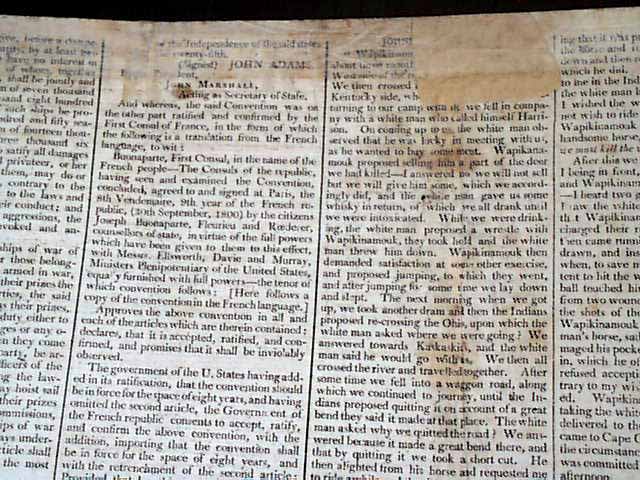 give, before a compe-
nalty, by at least two
have no interest in
of whom, together
shall be jointly and
m of seven thousand
usand eight hundred
such ships be pro-
ndred and fifty sea-
m of fourteen thou-
three thousand six
satisfy all damages
privateer, or her
them, may do or
contrary to the
to the laws and
heir conduct; and
aggressions, the
voked and an-
ships of war of
or those belong-
armed in war,
their prizes the
ties, the said
as their prizes,
duty either to
ges or any o-
en they come
party, be ar-
fficers of the
g the law-
hoist sail
heir prizes
ommissions,
hips of war
ays under-
rticle shall
the most
the Independence of the said states
twenty-fifth.
(Signed) JOHN ADAMS.
dent,
JOHN MARSHALL,
Acting as Secretary of State.
And whereas, the said Convention was on
the other part ratified and confirmed by the
First Consul of France, in the form of which
the following is a translation from the French
language, to wit:
Buonaparte, First Consul, in the name of the
French people—The Consuls of the republic,
having seen and examined the Convention,
concluded, agreed to and signed at Paris, the
8th Vendemaire, 9th year of the French re-
public, (30th September, 1800) by the citizens
Joseph Buonaparte, Fleurieu and Rœderer,
counsellors of state, in virtue of the full powers
which have been given to them to this effect,
with Messrs. Ellsworth, Davie and Murray,
Ministers Plenipotentiary of the United States,
equally furnished with full powers—the tenor of
which convention follows: [Here follows a
copy of the convention in the French language.]
Approves the above convention in all and
each of the articles which are therein contained:
declares, that it is accepted, ratified, and con-
firmed, and promises that it shall be inviolably
observed.
The government of the U. States having add-
ed in its ratification, that the convention should
be in force for the space of eight years, and having
omitted the second article, the Government of
the French republic consents to accept, ratify,
and confirm the above convention, with the
addition, importing that the convention shall
be in force for the space of eight years, and
with the retrenchment of the second article:
Provided that
JOHN
Wapikinam
about three
We then crossed
Kentucky side, wh
turning to our camp with us we fell in compa-
ny with a white man who called himself Harri-
son. On coming up to us the white man ob-
served that he was lucky in meeting with us,
as he wanted to buy some meat. Wapikina-
mouk proposed selling him a part of the deer
we had killed—I answered no we will not sell
but we will give him some, which we accord-
ingly did, and the white man gave us some
whisky in return, of which we all drank until
we were intoxicated. While we were drink-
ing, the white man proposed a wrestle with
Wapikinamouk, they took hold and the white
man threw him down. Wapikinamouk then
demanded satisfaction at some other exercise,
and proposed jumping, to which they went,
and after jumping for some time we lay down
and slept. The next morning when we got
up, we took another dram and then the Indians
proposed re-crossing the Ohio, upon which the
white man asked where we were going? We
answered towards Kaskaskia, and the white
man said he would go with us. We then all
crossed the river and travelled together. After
some time we fell into a waggon road, along
which we continued to journey, until the In-
dians proposed quitting it on account of a great
bend they said it made at that place. The white
man asked why we quitted the road? We ans-
wered because it made a great bend there, and
that by quitting it we took a short cut. He
then alighted from his horse and requested me
to ride
ing that it was
the horse and
down and then
which he did,
to me in the Ind
the white man
I wished the w
not wish to ride
Wapikinamouk
handsome horse
we must kill the
After this we
I being in front,
and Wapikinam
—I heard two g
I saw the white
that Wapikinam
charged their r
then came runn
drawn, and ins
when, to save m
tent to hit the w
ball touched him
from two wound
the shots of the
Wapikinamouk
man's horse, sad
maged his pocke
in, which he of
refused accept
trary to my wi
ed. Wapikinam
taking the white
delivered to the
came to Cape G
the circumstan
was committed
afternoon.